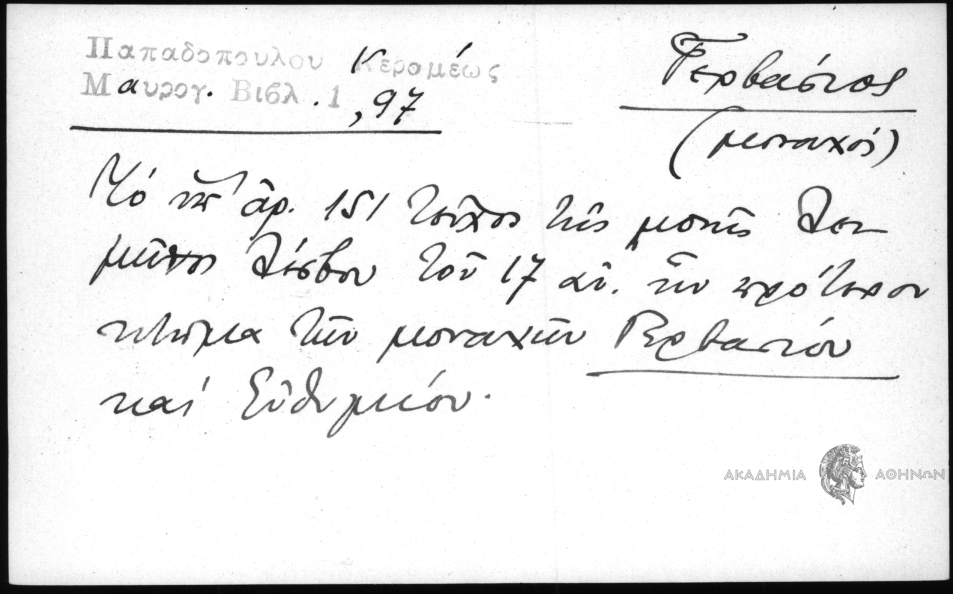 Παπαδοπούλου Κεραμέως
Μαυρογ. Βιβλ. 1, 97
Γερβάσιος
(μοναχός)
Τό ὑπ' ἀρ. 151 τεῦχος τῆς μονῆς Λει-
μῶνος Λέσβου τοῦ 17 αἰ. ἦν πρότερον
κτῆμα τῶν μοναχῶν Γερβασίου
καί Εὐθυμίου.
ΑΚΑΔΗΜΙΑ ΑΘΗΝΩΝ